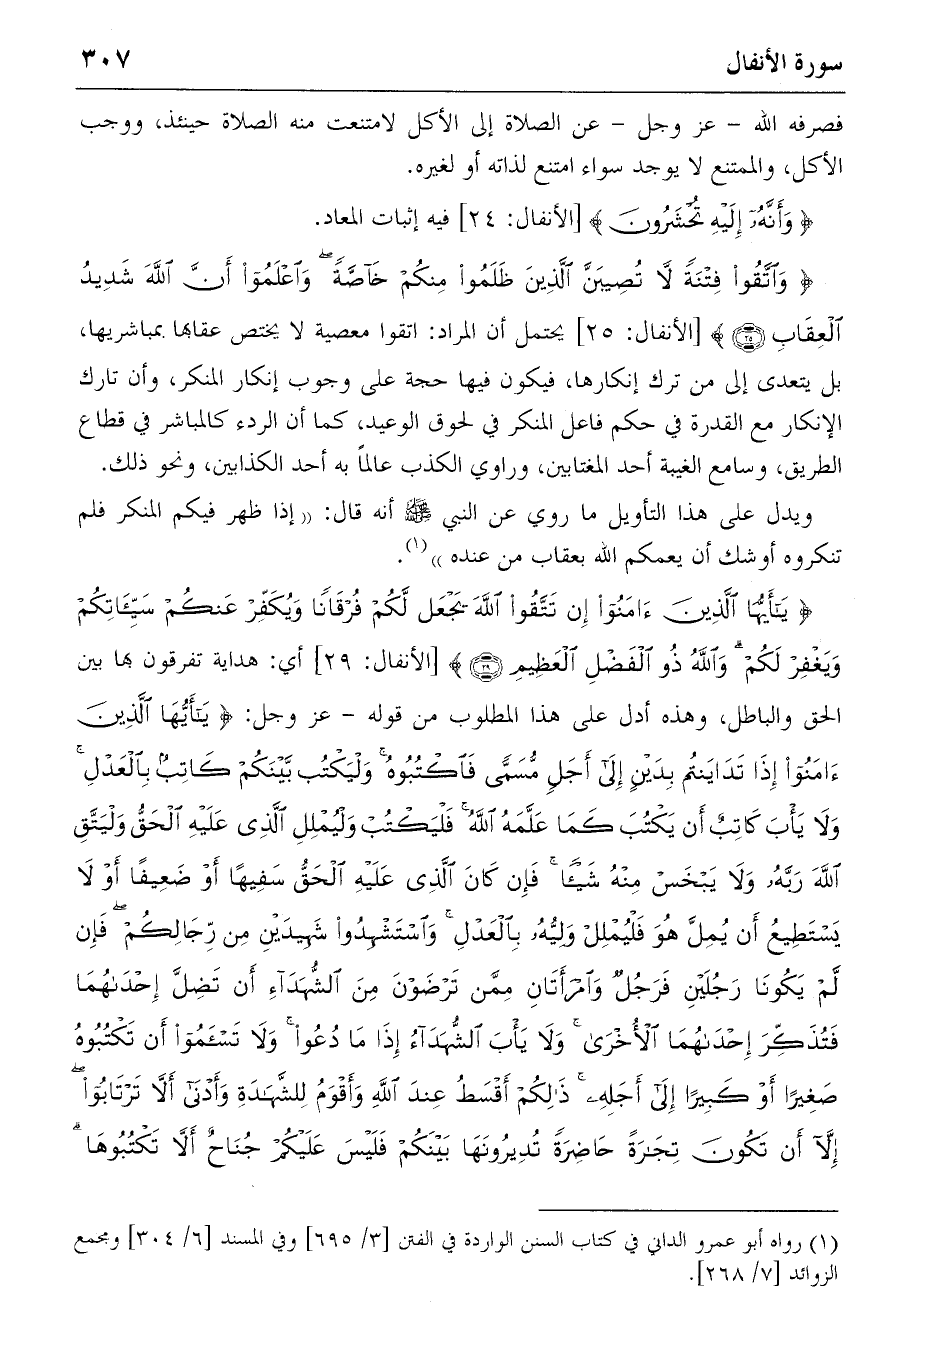 سورة الأنفال ٣٠٧
فصرفه الله - عز وجل - عن الصلاة إلى الأكل لامتنعت منه الصلاة حينئذ، ووجب
الأكل، والممتنع لا يوجد سواء امتنع لذاته أو لغيره.
﴿ وَأَنَّهُۥٓ إِلَيْهِ تُحْشَرُونَ ﴾ [الأنفال: ٢٤] فيه إثبات المعاد.
﴿ وَٱتَّقُوا۟ فِتْنَةً لَّا تُصِيبَنَّ ٱلَّذِينَ ظَلَمُوا۟ مِنكُمْ خَآصَّةً ۖ وَٱعْلَمُوٓا۟ أَنَّ ٱللَّهَ شَدِيدُ
ٱلْعِقَابِ ۝٢٥ ﴾ [الأنفال: ٢٥] يحتمل أن المراد: اتقوا معصية لا يختص عقابها بمباشريها،
بل يتعدى إلى من ترك إنكارها، فيكون فيها حجة على وجوب إنكار المنكر، وأن تارك
الإنكار مع القدرة في حكم فاعل المنكر في لحوق الوعيد، كما أن الردء كالمباشر في قطاع
الطريق، وسامع الغيبة أحد المغتابين، وراوي الكذب عالماً به أحد الكذابين، ونحو ذلك.
ويدل على هذا التأويل ما روي عن النبي ﷺ أنه قال: «إذا ظهر فيكم المنكر فلم
تنكروه أوشك أن يعمكم الله بعقاب من عنده»(١).
﴿ يَـٰٓأَيُّهَا ٱلَّذِينَ ءَامَنُوٓا۟ إِن تَتَّقُوا۟ ٱللَّهَ يَجْعَل لَّكُمْ فُرْقَانًا وَيُكَفِّرْ عَنكُمْ سَيِّـَٔاتِكُمْ
وَيَغْفِرْ لَكُمْ ۗ وَٱللَّهُ ذُو ٱلْفَضْلِ ٱلْعَظِيمِ ۝٢٩ ﴾ [الأنفال: ٢٩] أي: هداية تفرقون بها بين
الحق والباطل، وهذه أدل على هذا المطلوب من قوله - عز وجل: ﴿ يَـٰٓأَيُّهَا ٱلَّذِينَ
ءَامَنُوٓا۟ إِذَا تَدَايَنتُم بِدَيْنٍ إِلَىٰٓ أَجَلٍ مُّسَمًّى فَٱكْتُبُوهُ ۚ وَلْيَكْتُب بَّيْنَكُمْ كَاتِبٌۢ بِٱلْعَدْلِ ۚ
وَلَا يَأْبَ كَاتِبٌ أَن يَكْتُبَ كَمَا عَلَّمَهُ ٱللَّهُ ۚ فَلْيَكْتُبْ وَلْيُمْلِلِ ٱلَّذِى عَلَيْهِ ٱلْحَقُّ وَلْيَتَّقِ
ٱللَّهَ رَبَّهُۥ وَلَا يَبْخَسْ مِنْهُ شَيْـًٔا ۚ فَإِن كَانَ ٱلَّذِى عَلَيْهِ ٱلْحَقُّ سَفِيهًا أَوْ ضَعِيفًا أَوْ لَا
يَسْتَطِيعُ أَن يُمِلَّ هُوَ فَلْيُمْلِلْ وَلِيُّهُۥ بِٱلْعَدْلِ ۚ وَٱسْتَشْهِدُوا۟ شَهِيدَيْنِ مِن رِّجَالِكُمْ ۖ فَإِن
لَّمْ يَكُونَا رَجُلَيْنِ فَرَجُلٌ وَٱمْرَأَتَانِ مِمَّن تَرْضَوْنَ مِنَ ٱلشُّهَدَآءِ أَن تَضِلَّ إِحْدَىٰهُمَا
فَتُذَكِّرَ إِحْدَىٰهُمَا ٱلْأُخْرَىٰ ۚ وَلَا يَأْبَ ٱلشُّهَدَآءُ إِذَا مَا دُعُوا۟ ۚ وَلَا تَسْـَٔمُوٓا۟ أَن تَكْتُبُوهُ
صَغِيرًا أَوْ كَبِيرًا إِلَىٰٓ أَجَلِهِۦ ۚ ذَٰلِكُمْ أَقْسَطُ عِندَ ٱللَّهِ وَأَقْوَمُ لِلشَّهَـٰدَةِ وَأَدْنَىٰٓ أَلَّا تَرْتَابُوٓا۟ ۖ
إِلَّآ أَن تَكُونَ تِجَـٰرَةً حَاضِرَةً تُدِيرُونَهَا بَيْنَكُمْ فَلَيْسَ عَلَيْكُمْ جُنَاحٌ أَلَّا تَكْتُبُوهَا ۗ
(١) رواه أبو عمرو الداني في كتاب السنن الواردة في الفتن [٣/ ٦٩٥] وفي المسند [٦/ ٣٠٤] ومجمع
الزوائد [٧/ ٢٦٨].